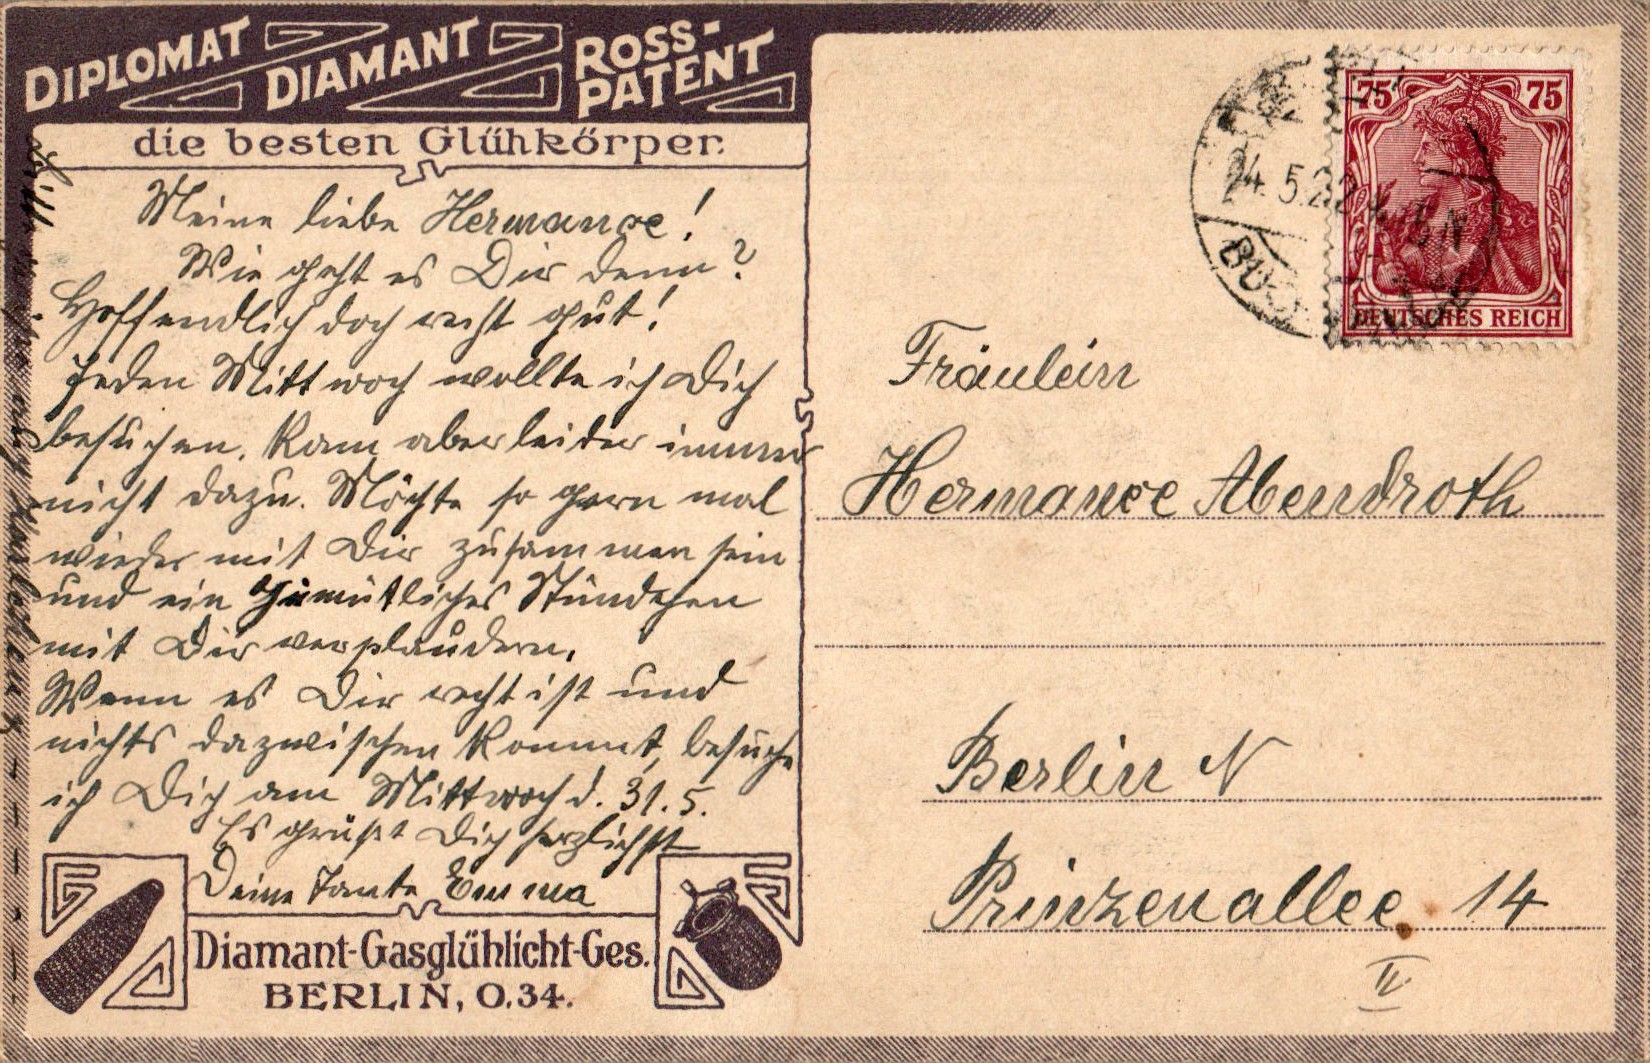 DIPLOMAT DIAMANT ROSS-PATENT
die besten Glühkörper.
Meine liebe Hermance!
Wie geht es Dir denn?
Hoffendlich doch recht gut!
Jeden Mittwoch wollte ich Dich
besuchen. Kam aber leider immer
nicht dazu. Möchte so gern mal
wieder mit Dir zusammen sein
und ein gemütliches Stündchen
mit Dir verplaudern.
Wenn es Dir recht ist und
nichts dazwischen kommt, besuche
ich Dich am Mittwoch d. 31.5.
Es grüßt Dich herzlichst
Deine Tante Emma
Diamant-Gasglühlicht-Ges.
BERLIN, O.34.
24.5.22
5 N
BUCH
75 75
DEUTSCHES REICH
Fräulein
Hermance Abendroth
Berlin N
Prinzenallee 14
II